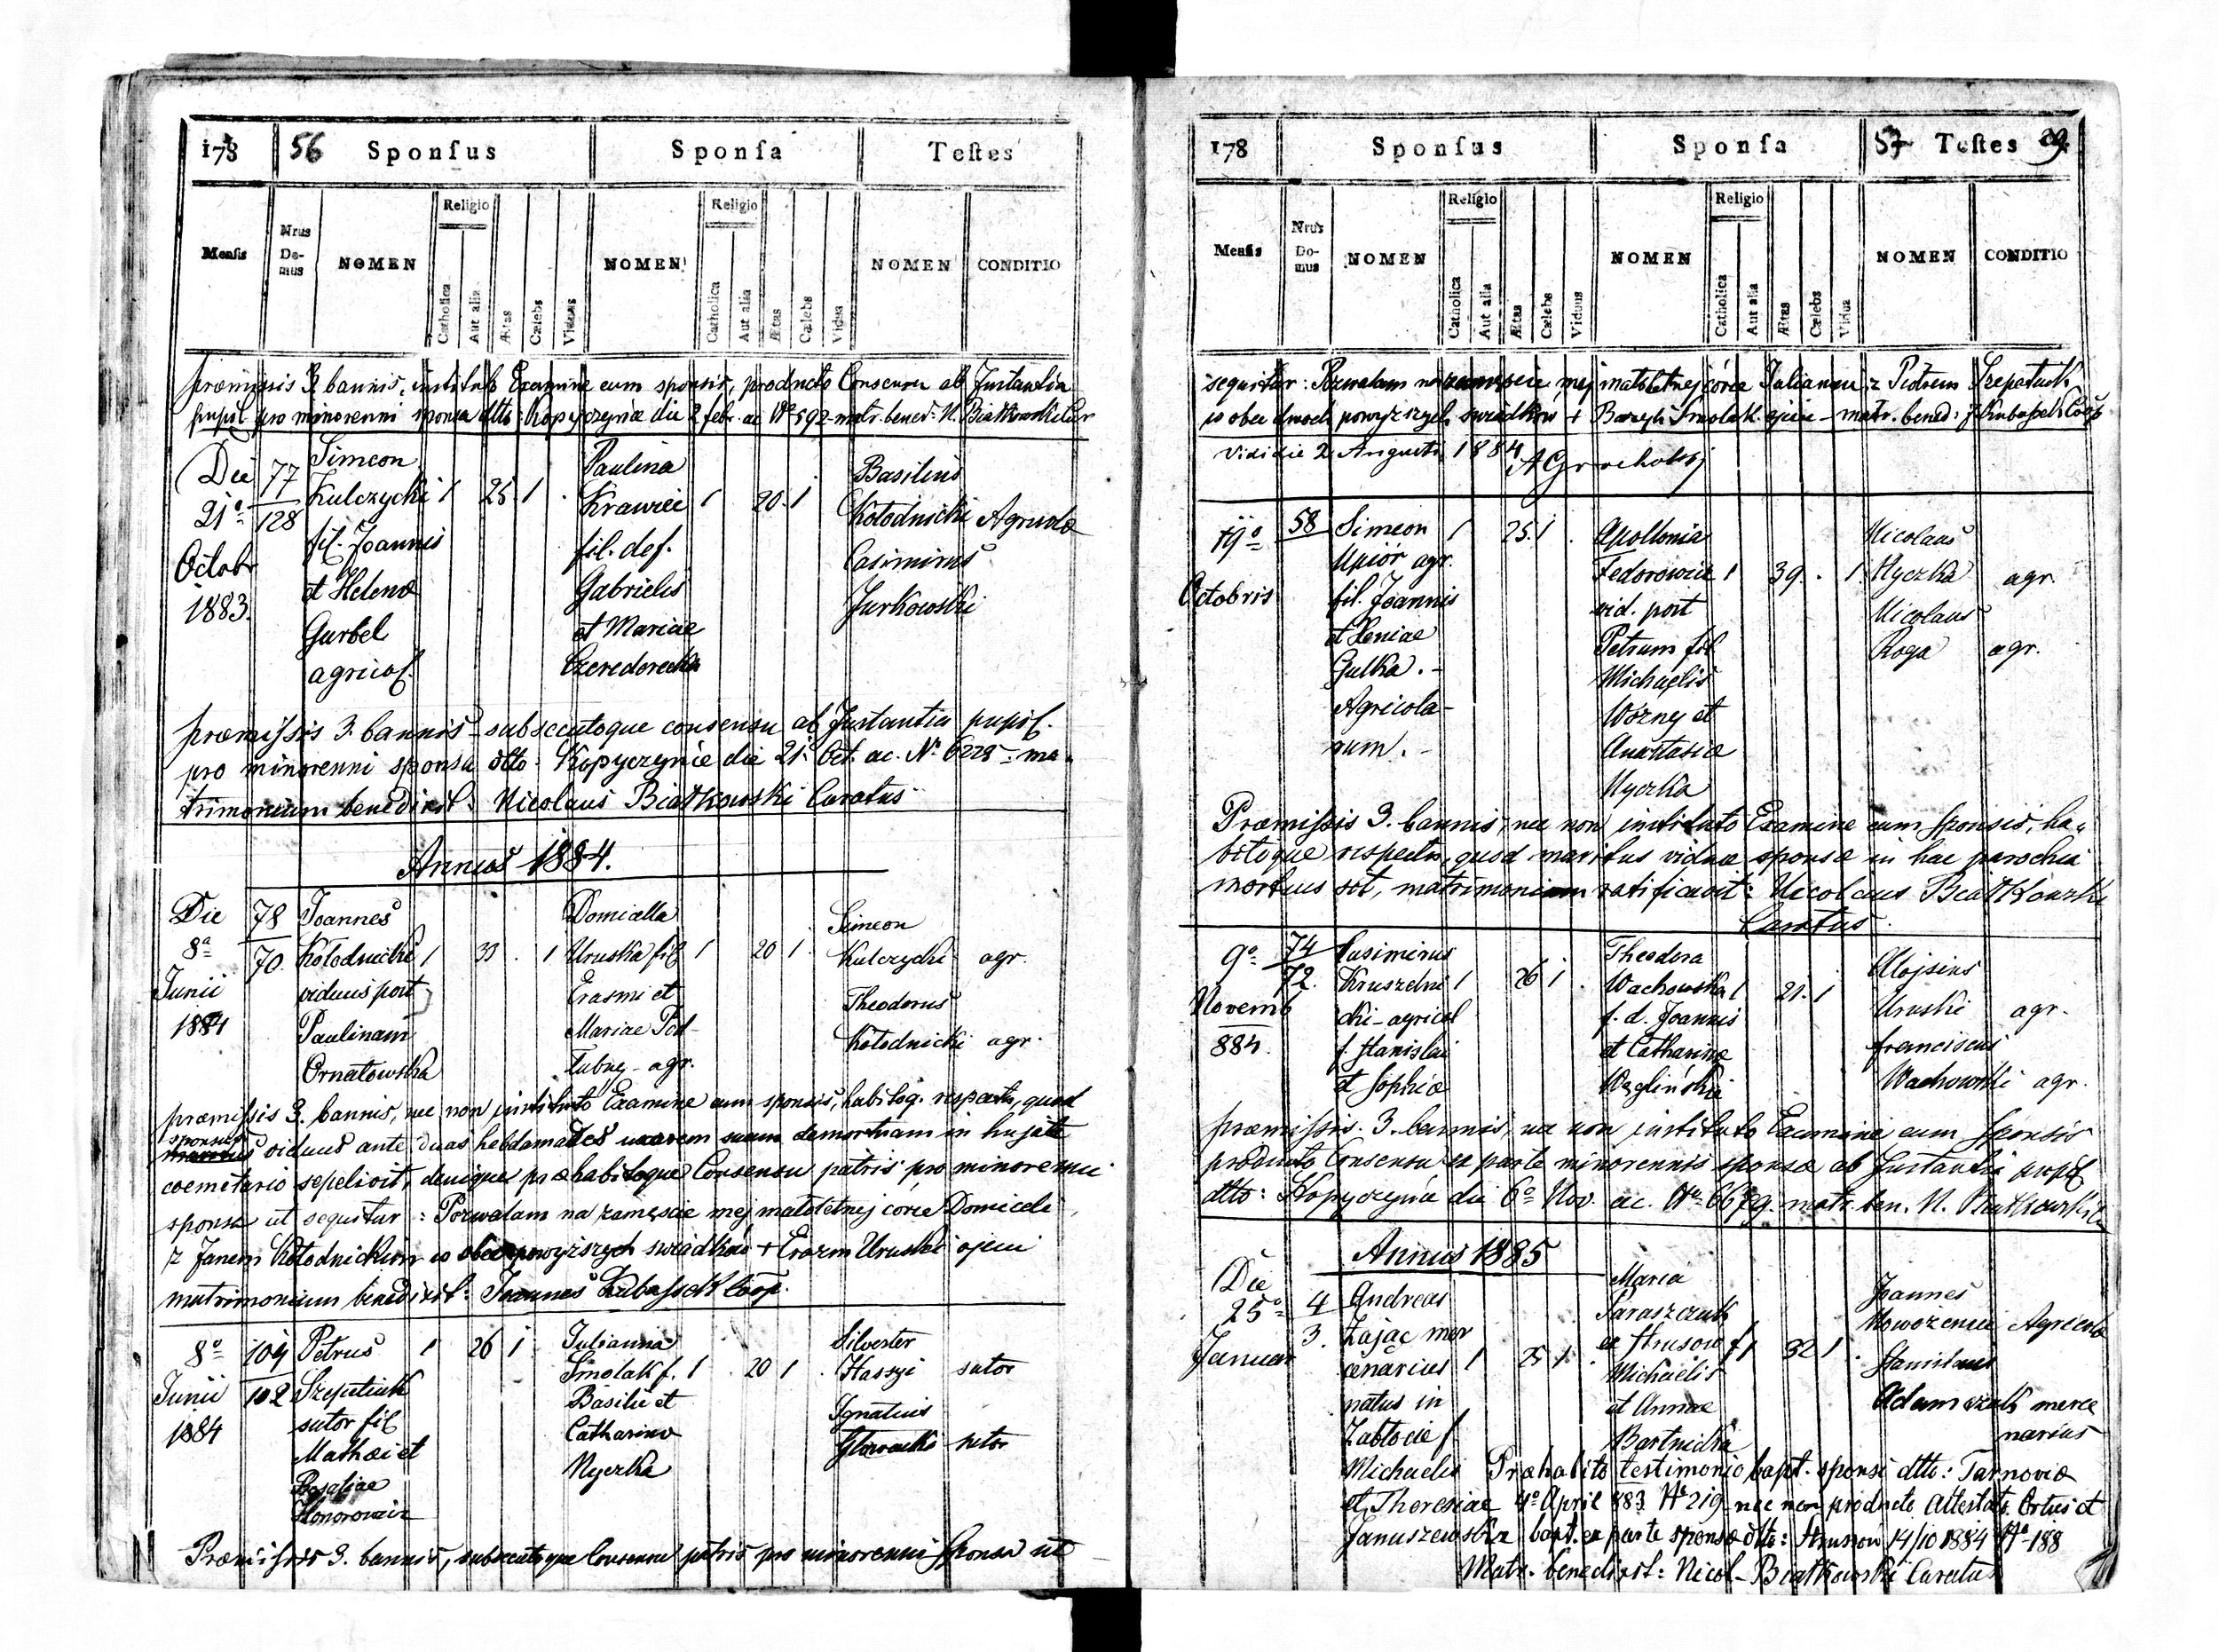 178 56 Sponsus Sponsa Testes
Religio Religio
Mensis Nrus Domus NOMEN Catholica Aut alia Ætas Cælebs Viduus NOMEN Catholica Aut alia Ætas Cælebs Vidua NOMEN CONDITIO
præmissis 3. bannis, instituto Examine cum sponsis, producto Consensu ab Instantia
pupil. pro minorenni sponsa dtto: Kopyczyńce die 2 febr. ac Nº 592 matr. bened: N. Białkowski Cur
Die 77 Simeon Paulina Basilius
21º 128 Kulczycki 1 25 1 Krawiec 1 20 1 Kołodnicki Agricola
Octobr fil. Joannis fil. def. Casimirus
1883. et Helenæ Gabrielis Jurkowski
Gurbel et Mariae
agricol. Czerederecka
præmissis 3. bannis subsecutoque consensu ab Instantia pupil.
pro minorenni sponsa dtto: Kopyczyńce die 21. Oct. ac. Nº 6228 ma-
trimonium benedixit: Nicolaus Białkowski Curatus
Annus 1884.
Die 78 Joannes Domicella Simeon
8ª 70. Kołodnicki 1 33 1 Uruska fil 1 20 1 Kulczycki agr.
Junii viduus post Erasmi et Theodorus
1884 Paulinam Mariae Pod- Kołodnicki agr.
Ornatowska łubny agr.
præmissis 3. bannis, nec non instituto Examine cum sponsis, habitoq. respectu, quod
sponsus
maritus viduus ante duas hebdomades uxorem suam demortuam in hujate
coemeterio sepelivit, denique præhabitoque Consensu patris pro minorenni
sponsa ut sequitur: Pozwalam na zamęście mej małoletnej córce Domiceli
z Janem Kołodnickim w obec powyższych świadków + Erazm Uruski ojciec
matrimonium benedixit: Joannes Kubassek Coop.
8º 109 Petrus 1 26 1 Julianna Silvester
Junii 102 Szepetiuk Smolak f. 1 20 1 Hassyi sutor
1884 sutor fil Basilii et Ignatius
Mathæi et Catharinæ Głowacki sutor
Rosaliae Nyczka
Honorowicz
Præmissis 3. bannis, subsecutoque Consensu patris pro minorenni sponsa ut
178 Sponsus Sponsa 57 Testes 29.
Religio Religio
Mensis Nrus Domus NOMEN Catholica Aut alia Ætas Cælebs Viduus NOMEN Catholica Aut alia Ætas Cælebs Vidua NOMEN CONDITIO
sequitur: Pozwalam na zamęście mej małoletnej córce Juliannie z Piotrem Szepetiuk
w obec dwoch powyższych świadków + Bazyli Smolak ojciec matr. bened: J Kubassek Coop
Vidi die 2 Augusti 1884 A Grocholski
19º 58 Simeon 1 25. 1 Apollonia Nicolaus
Octobris Upiór agr. Fedorowicz 1 39 . 1. Nyczka agr.
fil. Joannis vid. post Nicolaus
et Xeniae Petrum fil Roga agr.
Gulka. Michaelis
Agricola- Wozny et
rum. Anastasiæ
Nyczka
Præmissis 3. bannis, nec non instituto Examine cum sponsis, ha-
bitoque respectu, quod maritus viduæ sponsæ in hac parochia
mortuus est, matrimonium ratificavit: Nicolaus Białkowski
Curatus.
9º 74 Casimirus Theodora Alojsius
72. Kruszelni 1 26 1 Wachowska 1 21. 1 Uruski agr.
Novemb cki agricol f. d. Joannis Franciscus
884. f. Stanislai et Catharinæ Wachowski agr.
et Sophiæ Węglińska
præmissis. 3. bannis, nec non instituto Examine cum sponsis
producto Consensu ex parte minorennis sponsæ ab Instantia pupil
dtto: Kopyczyńce die 6º Nov. ac. Nº 6679. matr. ben. N. Białkowski
Annus 1885
Die Maria
25º 4 Andreas Paraszczuk Joannes
Januar 3. Zając mer ex Strusow f Noworzeniec Agricola
cenarius 1 25 1. Michaelis 1 32 1 Stanislaus
natus in et Annae Adamczuk merce
Zabłocie f Bartnicka narius
Michaelis Præhabito testimonio bapt. sponsi dtto: Tarnoviæ
et Theresiae 4º April 883 Nº 219 nec non producto Attestato Ortus et
Januszewska bapt. ex parte sponsæ dtto: Strusow 14/10 1884 Nº 188
Matr. benedixit: Nicol. Białkowski Curatus